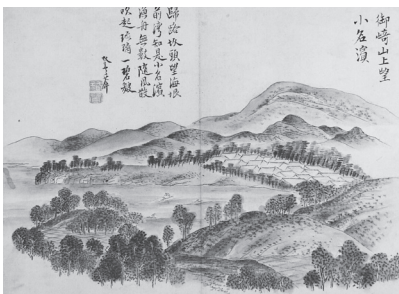 御崎山上望
小名濱
歸路坡頭望海垠
前灣知是小名濱
海舟無數隨風散
吹起琉璃一碧皴